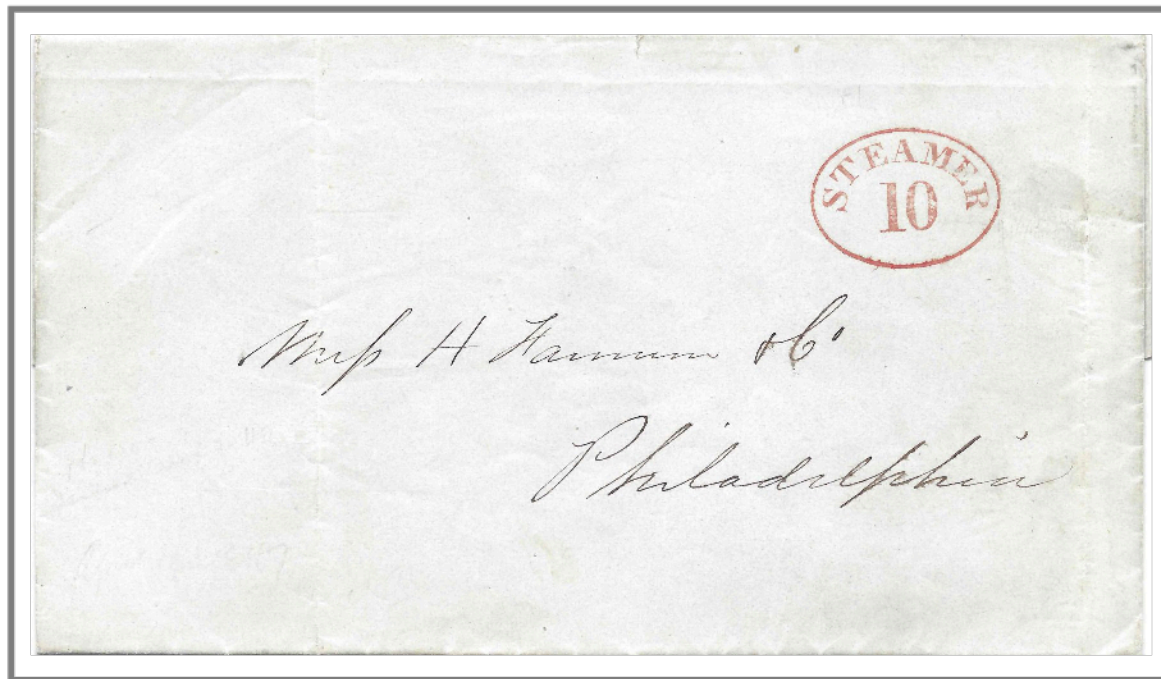 STEAMER
10
Mess H Farnum & Co
Philadelphia